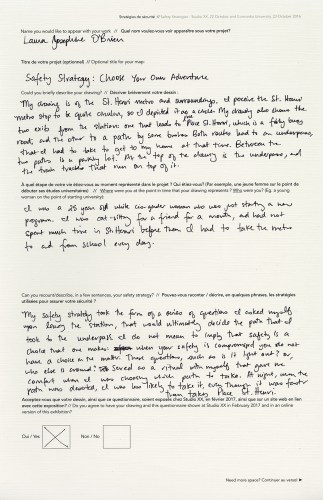 Stratégies de sécurité // Safety Strategies - Studio XX, 2110 Centre and Concordia University, 23 October 2016
Name you would like to appear with your work // Quel nom voulez-vous voir apparaître sous votre projet?
Laura Josephine O'Brien
Titre de votre projet (optionnel) // Optional title for your map:
Safety Strategy: Choose Your Own Adventure
Could you briefly describe your drawing? // Décrivez brièvement votre dessin:
My drawing is of the St. Henri metro and surroundings. I perceive the St. Henri
metro stop to be quite circular, so I depicted it as a circle. My drawing also shows the
two exits from the station: one that leads to Place St. Henri, which is a fairly busy
road; and the other to a path by some bushes. Both routes lead to an underpass,
that I had to take to get to my home at that time. Between the
two paths is a parking lot. At the top of the drawing is the underpass, and
the train tracks that run on top of it.
À quel étape de votre vie étiez-vous au moment représenté dans le projet? Qui étiez-vous? (Par exemple, une jeune femme sur le point de
débuter ses études universitaires) // Where were you at the point in time that your drawing represents? Who were you? (Eg. a young
woman on the point of starting university)
I was a 25 year old white cis-gender woman who was just starting a new
program. I was cat-sitting for a friend for a month, and had not
spent much time in St Henri before then. I had to take the metro
to and from school every day.
Can you recount/describe, in a few sentences, your safety strategy? // Pouvez-vous raconter / décrire, en quelques phrases, les stratégies
utilisées pour assurer votre sécurité?
My safety strategy took the form of a series of questions I asked myself
upon leaving the station, that would ultimately decide the path that I
took to the underpass. I do not mean to imply that safety is a
choice that one makes when your safety is compromised you do not
have a choice in the matter. These questions, such as is it light out? or
who else is around? served as a ritual with myself that gave me
comfort when I was choosing which path to take. At night, when the
path was deserted, I was less likely to take it, even though it was faster
than taking Place St. Henri.
Acceptez-vous que votre dessin, ainsi que ce questionnaire, soient exposés chez Studio XX, en février 2017, ainsi que sur un site web en lien
avec cette exposition? // Do you agree to have your drawing and this questionnaire shown at Studio XX in February 2017 and in an online
version of this exhibition?
Oui / Yes Non / No
Need more space? Continuer au verso!